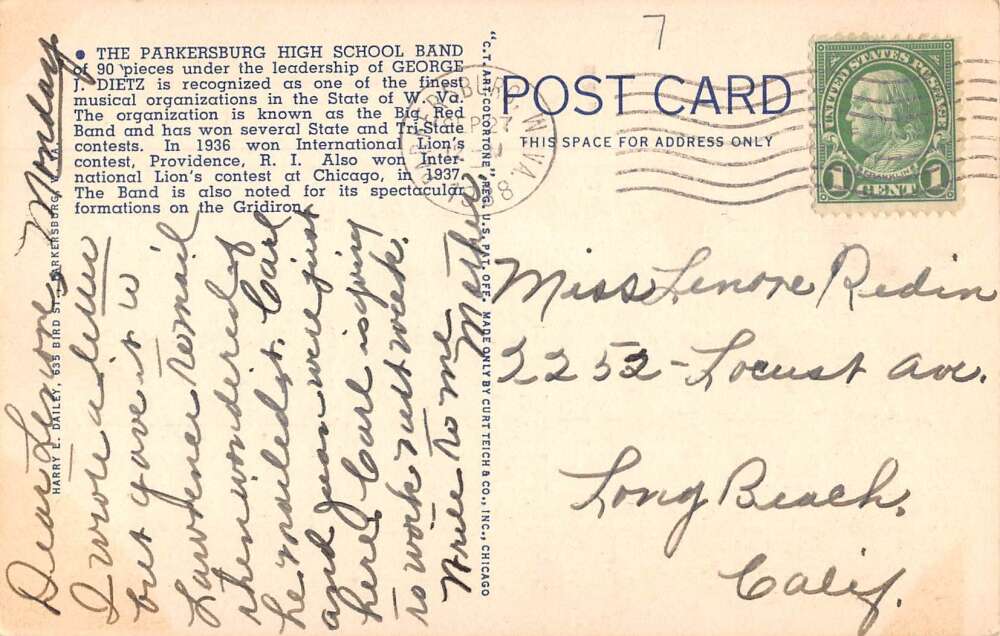 7
• THE PARKERSBURG HIGH SCHOOL BAND
of 90 pieces under the leadership of GEORGE
J. DIETZ is recognized as one of the finest
musical organizations in the State of W. Va.
The organization is known as the Big Red
Band and has won several State and Tri-State
contests. In 1936 won International Lion's
contest, Providence, R. I. Also won Inter-
national Lion's contest at Chicago, in 1937.
The Band is also noted for its spectacular
formations on the Gridiron.
HARRY E. DAILEY, 535 BIRD ST., PARKERSBURG, W. VA.
"C.T. ART-COLORTONE" REG. U. S. PAT. OFF. MADE ONLY BY CURT TEICH & CO., INC., CHICAGO
POST CARD
THIS SPACE FOR ADDRESS ONLY
PARKERSBURG W. VA.
SEP 27
1938
UNITED STATES POSTAGE
FRANKLIN
1 CENT 1
Monday
Dear Lenore,
I wrote a letter
but gave it to
Lawrence to mail
then wondered if
he mailed it. Carl
and Jean were just
here. Carl is going
to work next week.
Write to me
Mother
Miss Lenore Redin
2252 - Locust Ave.
Long Beach,
Calif.